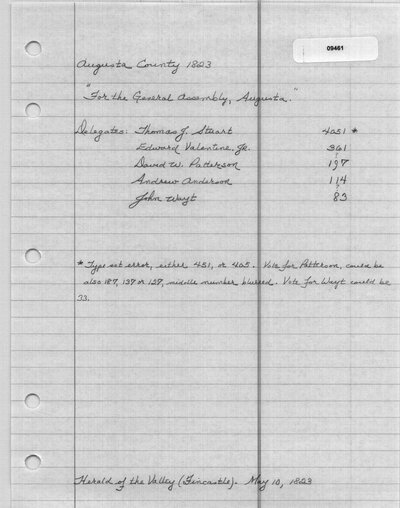 09461
Augusta County 1823
"For the General Assembly, Augusta."
Delegates: Thomas J. Stuart 4051 *
Edward Valentine, Jr. 361
David W. Patterson 197
?
Andrew Anderson 114
?
John Wayt 83
* Type set error, either 451, or 405. Vote for Patterson, could be
also 187, 137 or 127, middle number blurred. Vote for Wayt could be
33.
Herald of the Valley (Fincastle). May 10, 1823